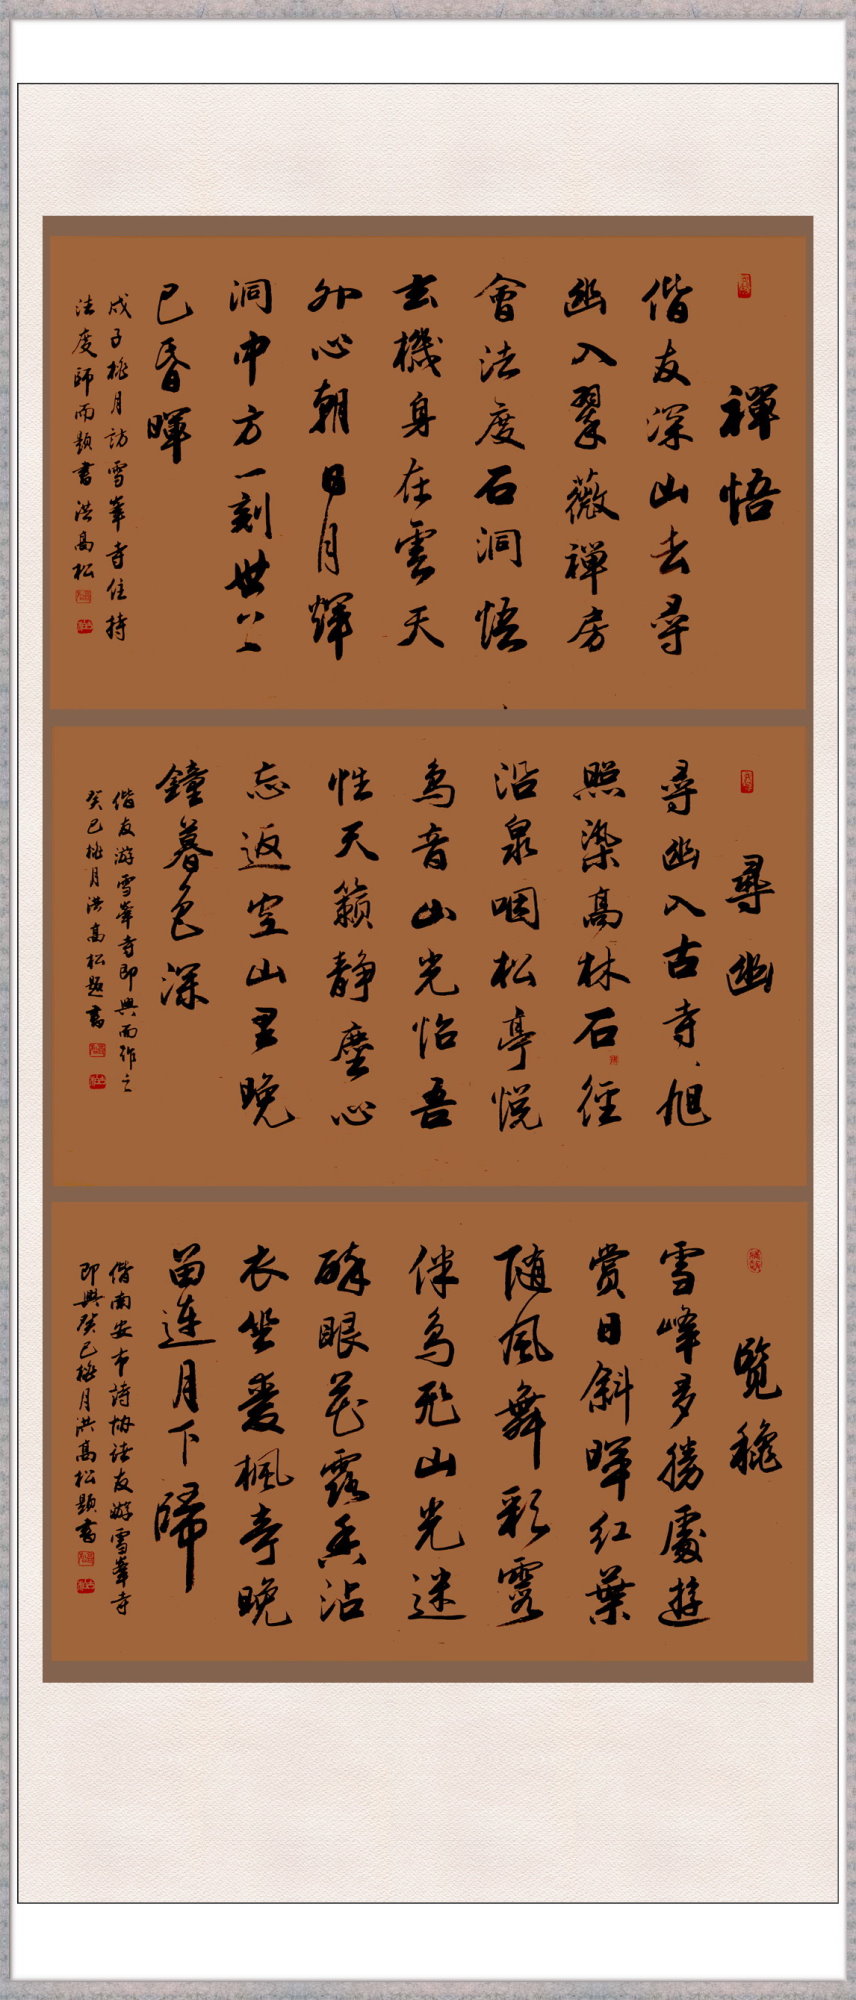 禪悟
偕友深山去尋
幽入翠薇禪房
會法度石洞悟
玄機身在雲天
外心朝日月輝
洞中方一刻世上
已昏暉
戊子桃月訪雪峯寺住持
法度師而題書 洪高松
尋幽
尋幽入古寺旭
照染高林石徑
沿泉咽松亭悅
鳥音山光怡吾
性天籟静塵心
忘返空山里晚
鐘暮色深
偕友游雪峯寺即興而作之
癸巳桃月洪高松題書
覽穐
雪峰多勝處遊
賞日斜暉紅葉
隨風舞彩霞
伴鳥飛山光迷
醉眼花露香沾
衣坐愛楓亭晚
留連月下歸
偕南安市詩協諸友游雪峯寺
即興癸巳桃月洪高松題書